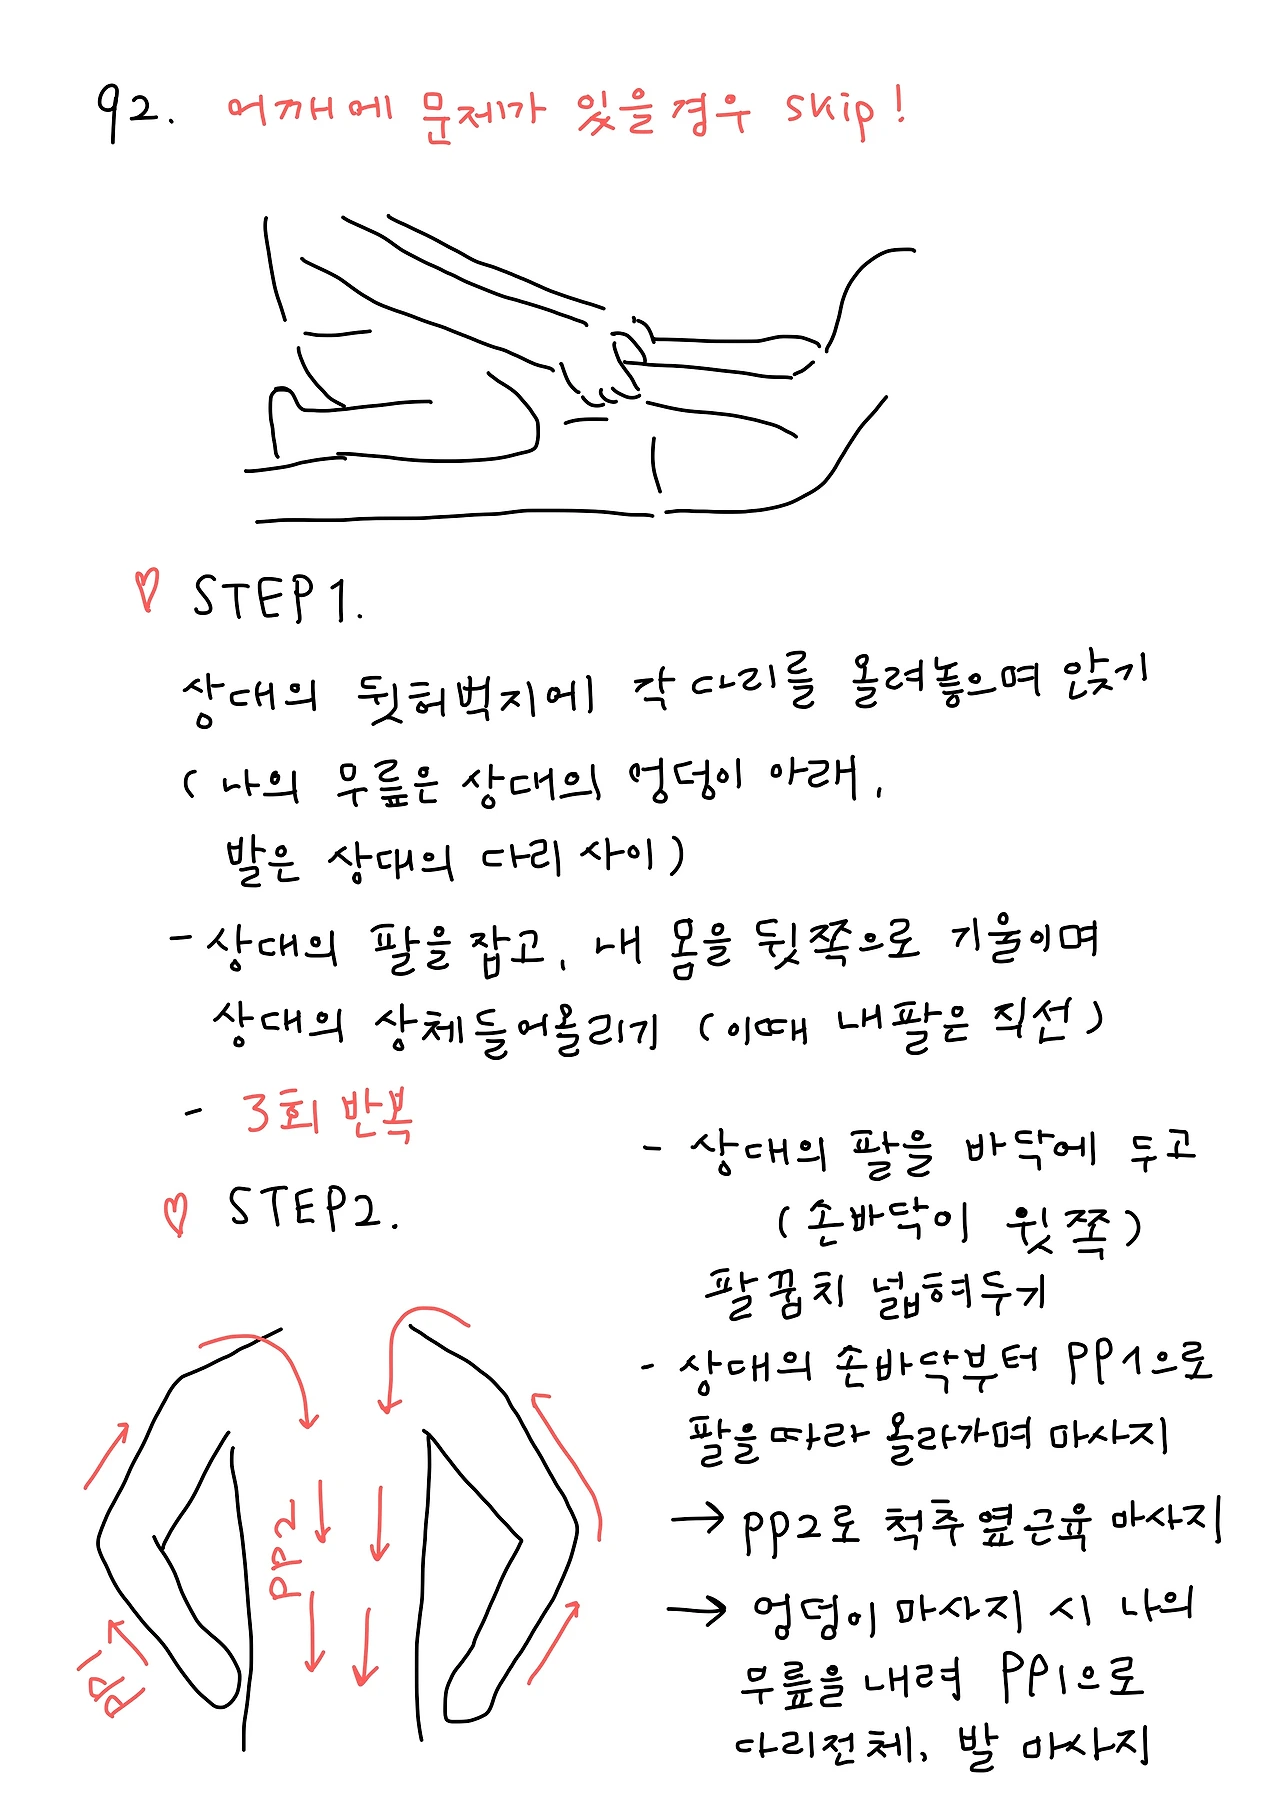 92. 어깨에 문제가 있을경우 skip!
STEP1.
상대의 뒷허벅지에 각 다리를 올려놓으며 앉기
(나의 무릎은 상대의 엉덩이 아래,
발은 상대의 다리 사이)
- 상대의 팔을 잡고, 내 몸을 뒷쪽으로 기울이며
상대의 상체들어올리기 (이때 내팔은 직선)
- 3회 반복
STEP2.
PP1
PP2
- 상대의 팔을 바닥에 두고
(손바닥이 윗쪽)
팔꿈치 넓혀두기
- 상대의 손바닥부터 PP1으로
팔을따라 올라가며 마사지
→ PP2로 척추옆근육 마사지
→ 엉덩이 마사지 시 나의
무릎을 내려 PP1으로
다리전체, 발 마사지